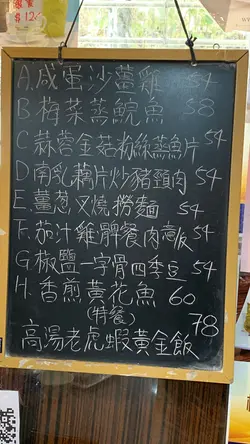 $12
A.咸蛋沙薑雞 54
B 梅菜蒸鯇魚 58
C 蒜蓉金菇粉絲蒸魚片 54
D 南乳藕片炒豬頸肉 54
E.薑葱叉燒撈麵 54
F.茄汁雞髀餐肉意飯 54
G.椒鹽一字骨四季豆 54
H.香煎黃花魚 60
(特餐)
高湯老虎蝦黃金飯 78